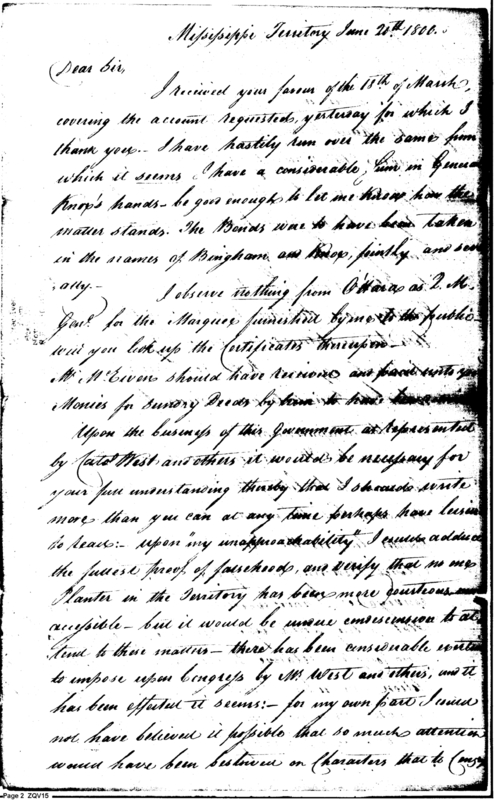 Mississippi Territory June 20th 1800.
Dear Sir,
I received your favour of the 18th of March,
covering the account requested, yesterday for which I
thank you – I have hastily run over the same from
which it seems I have a considerable Sum in General
Knox's hands – be good enough to let me know how the
matter stands. The Bonds were to have been taken
in the names of Bingham and Knox, jointly and sev
erally –
I observe nothing from O'Hara as Q. M.
Genl. for the Marquee furnished by me to the public
will you look up the Certificates thereupon –
Mr. McEwen should have received and paid unto you
Monies for Sundry Deeds by him to have
Upon the business of this government as represented
by Cato West and others it would be necessary for
your full understanding thereby that I should write
more than you can at any time perhaps have leisure
to read: – upon "my unapproachability" I could adduce
the fullest proof of falsehood, and verify that no one
Planter in the Territory has been more courteous and
accessible – but it would be undue condescension to at
tend to those matters – there has been considerable
to impose upon Congress by Mr West and others, and it
has been effected it seems: – for my own part I could
not have believed it possible that so much attention
would have been bestowed on Characters that to
Page 2 ZQV15